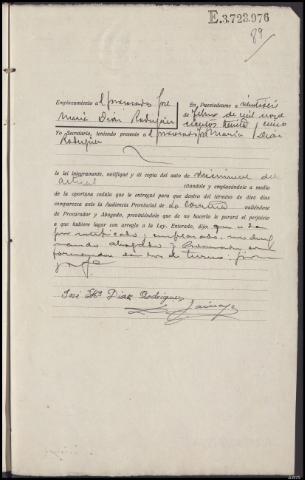 E.3.723.976
89
Emplazamiento a el procesado José
María Diáz Rodríguez
En Puentedeume a veintiseis
de febrero de mil nove
cientos treinta y cinco
Yo Secretario, teniendo presente a el procesado José María Diáz
Rodríguez
le leí íntegramente, notifiqué y dí copia del auto de
actual citándole y emplazándole a medio
de la oportuna cédula que le entregué para que dentro del término de diez días
comparezca ante la Audiencia Provincial de La Coruña valiéndose
de Procurador y Abogado, previniéndole que de no hacerlo le parará el perjuicio
a que hubiere lugar con arreglo a la Ley. Enterado, dijo: que se da
por notificado y emplazado
abogado y Procurador
de turno: firma
José Mª Diáz Rodríguez